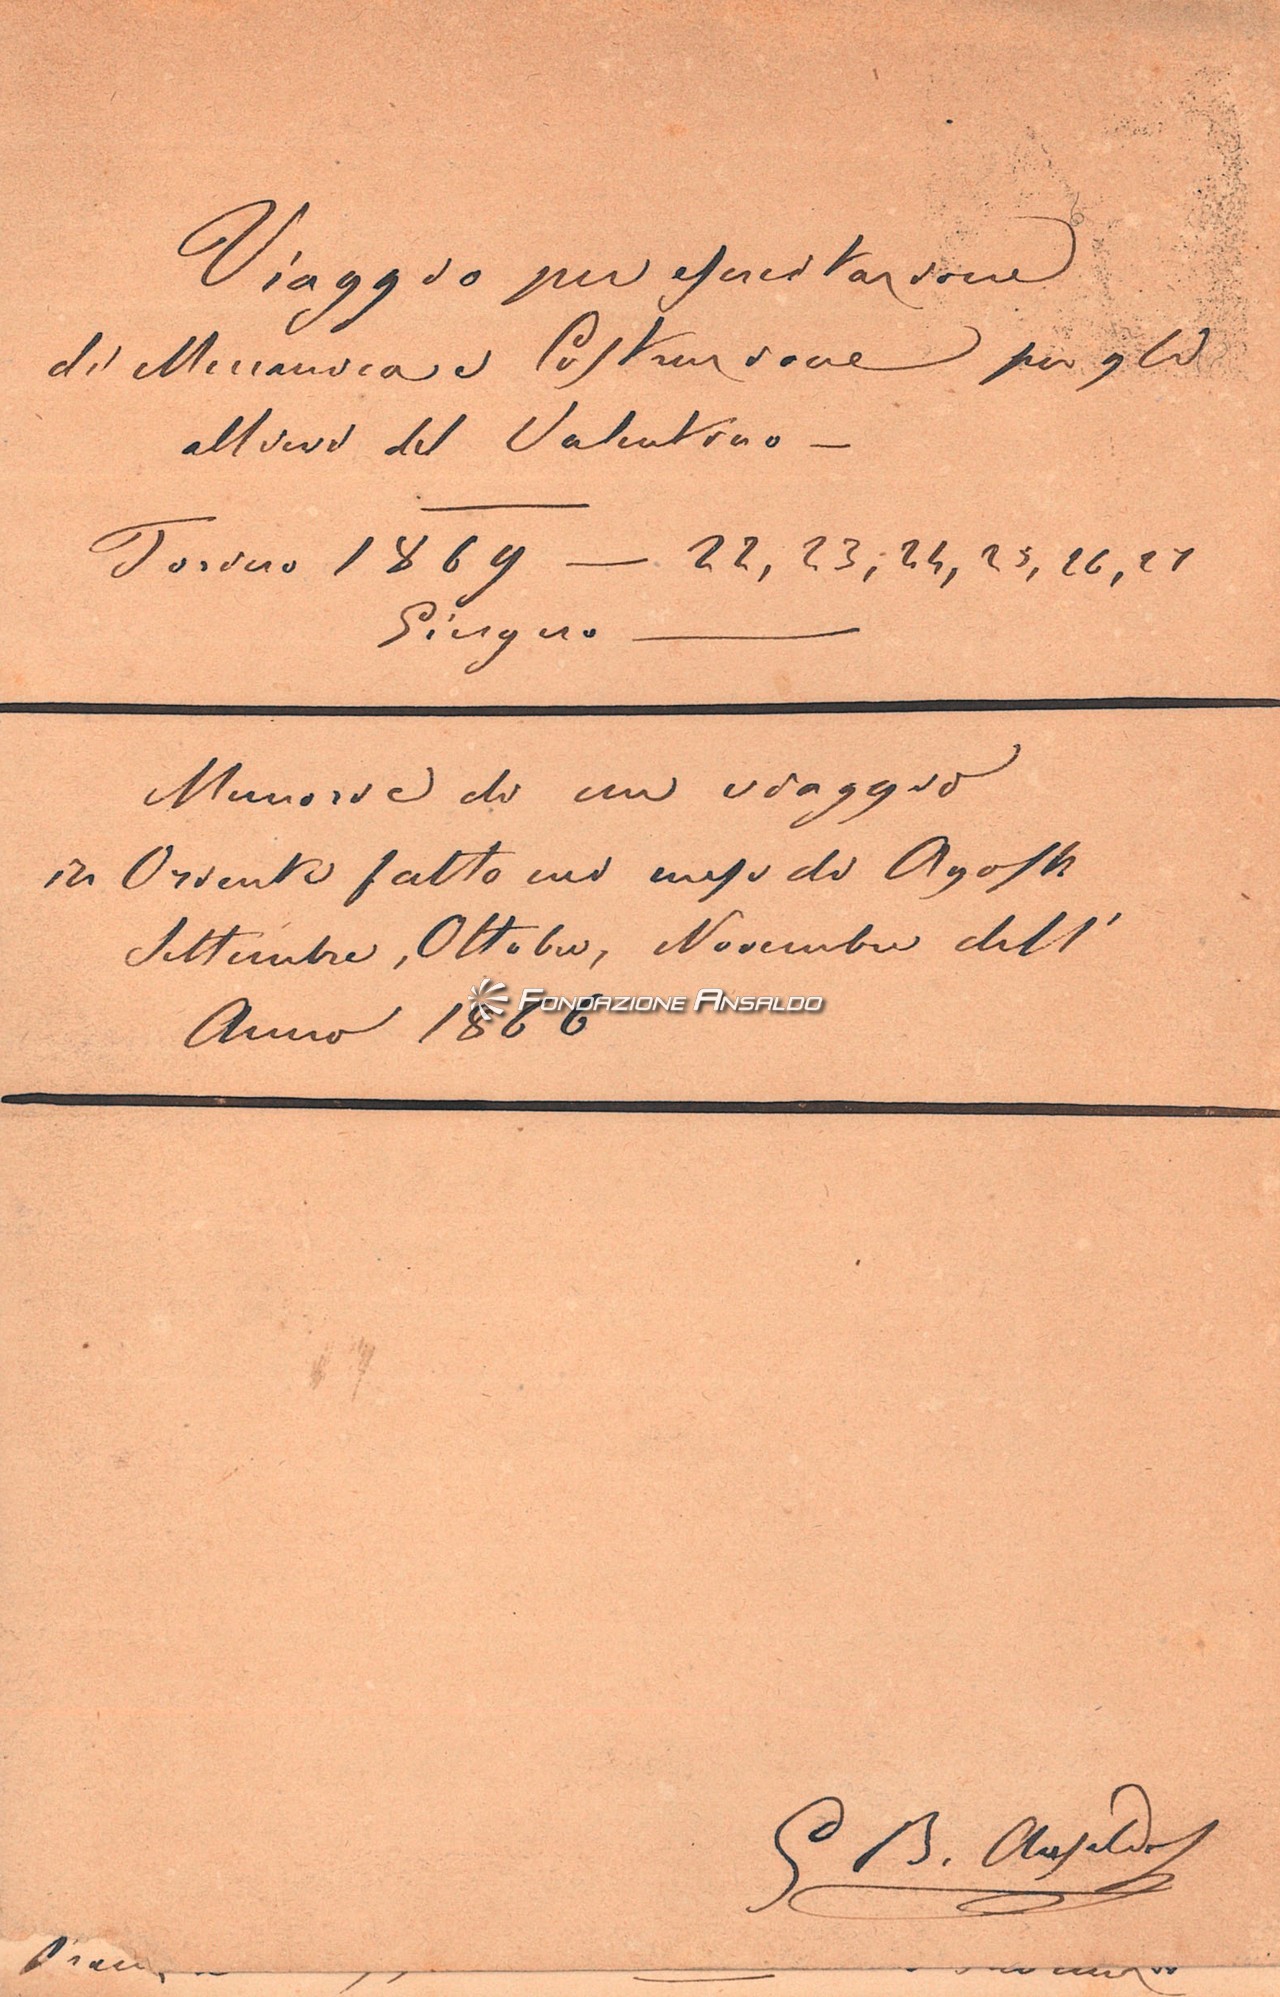 Viaggio per esercitazione
di Meccanica e Costruzione per gli
allievi del Valentino —
Torino 1869 — 22, 23, 24, 25, 26, 27
Giugno —
Memorie di un viaggio
in Oriente fatto nei mesi di Agosto
Settembre, Ottobre, Novembre dell'
Anno 1866
FONDAZIONE ANSALDO
G B. Ansaldo